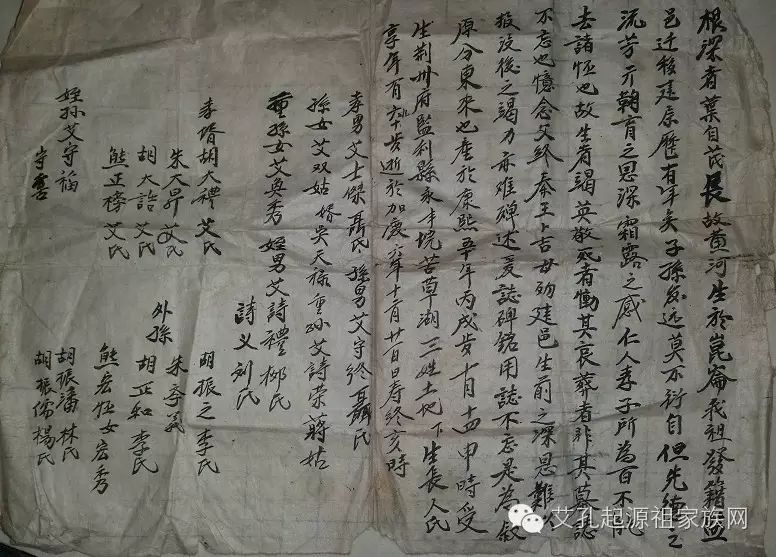 根深者葉自茂長故黄河生於崑崙我祖發籍
邑迁後建原歷有年矣子孫多远莫不衍自但先德之
流芳亓鞠育之思深霜露之感仁人孝子所為百不
去諸怀也故生者竭其敬死者慟其哀葬者非其
不忘也憶念父終秦王上古母効建邑生前之深恩難
投没後之竭力亦难殫述爰誌碑銘用誌不忘是為叙
原分東來也產於康熙五年丙戌歩十月十四申時受
生荆州府監利縣永丰垸苦草湖三姓土地下生長人氏
享年百六十歩逝於加慶六年十二月廿一日寿終亥時
孝男艾士傑聶氏孫男艾守終聶氏
孫女艾双姑婿吳天禄重孙艾詩荣蒋姑
重孫女艾興秀姪男艾詩禮柳氏
詩义刘氏
孝婿胡大禮艾氏
朱大昇艾氏
胡大誥艾氏
熊正榜艾氏
胡振之李氏
外孫
朱
胡正和李氏
熊宏恆女宏秀
胡振潘林氏
胡振儒楊氏
姪孫艾守福
守
艾孔起源祖家族网